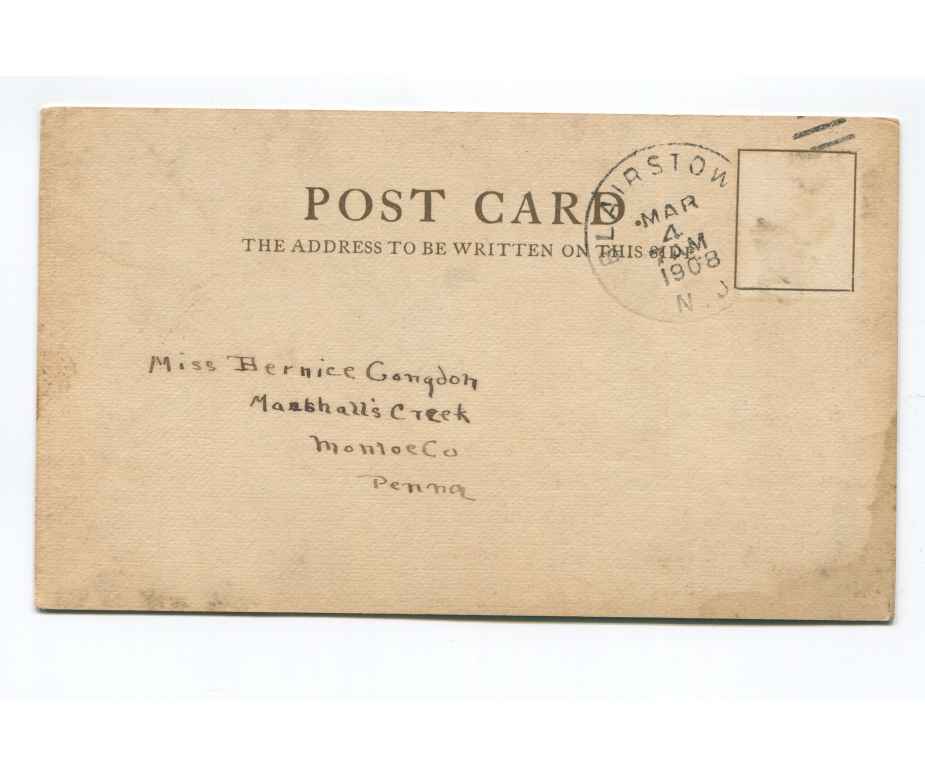 POST CARD
THE ADDRESS TO BE WRITTEN ON THIS SIDE.
BLAIRSTOW
MAR
4
7 AM
1908
N.J
Miss Bernice Congdon
Marshall's Creek
Monroe Co
Penna